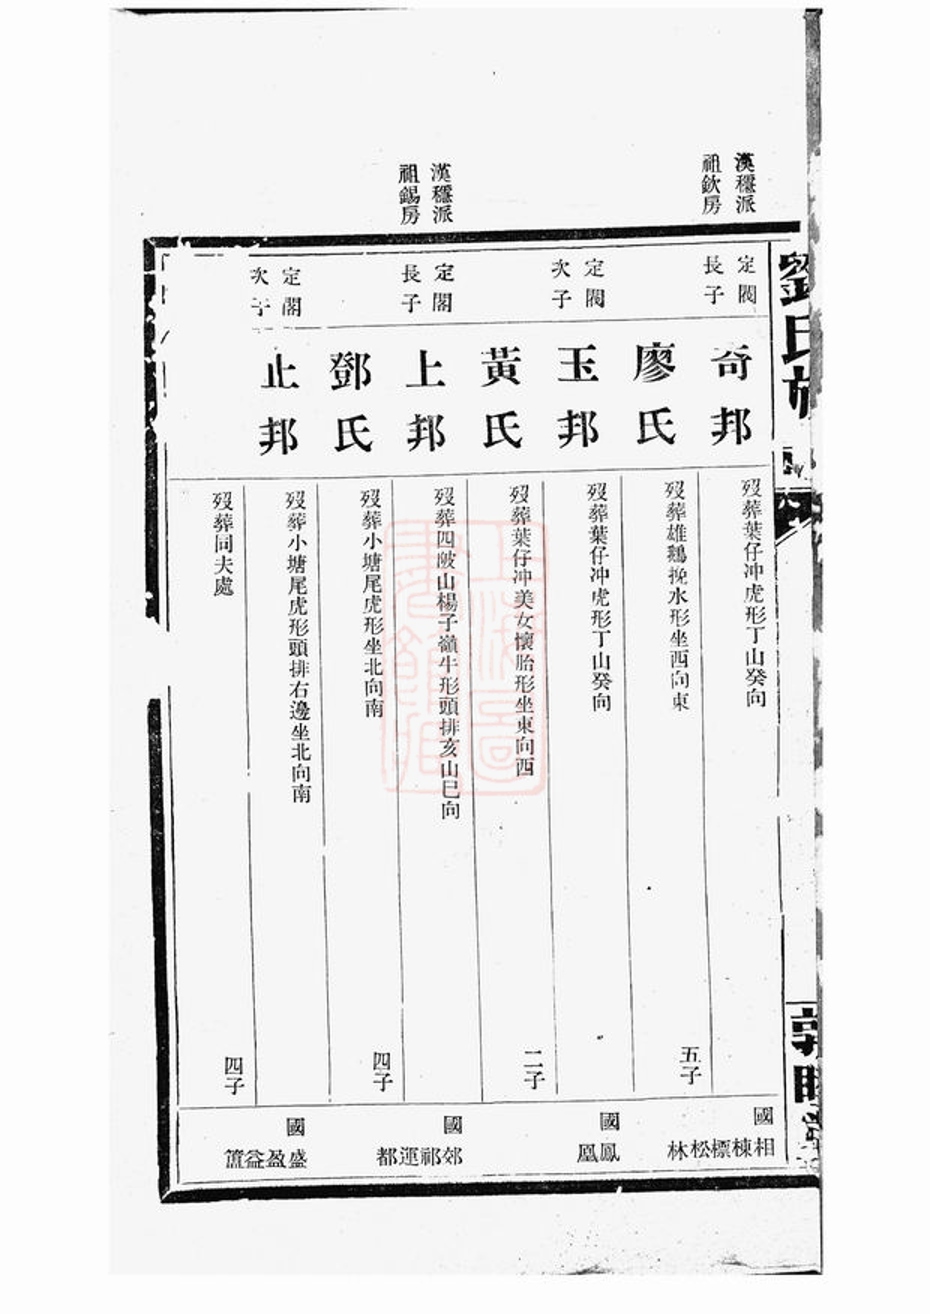 劉氏族
敦睦堂
漢穩派
祖欽房
定閥
長子
奇邦
歿葬葉仔冲虎形丁山癸向
國
相棟標松林
廖氏
歿葬雄鷄挽水形坐西向東
五子
定閥
次子
玉邦
歿葬葉仔冲虎形丁山癸向
國
鳳凰
黃氏
歿葬葉仔冲美女懷胎形坐東向西
二子
漢穩派
祖錫房
定閣
長子
上邦
歿葬四陂山楊子嶺牛形頭排亥山巳向
國
郊祁運都
鄧氏
歿葬小塘尾虎形坐北向南
四子
定閣
次子
止邦
歿葬小塘尾虎形頭排右邊坐北向南
國
盛盈益簠
歿葬同夫處
四子
上海圖書館藏